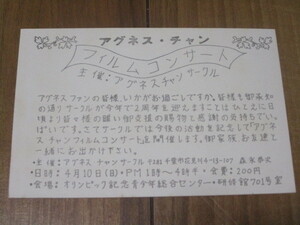 アグネス・チャン
フィルムコンサート
主催:アグネスチャンサークル
アグネスファンの皆様、いかがお過ごしですか。皆様も御承知
の通りサークルが今年で2周年を迎えたますことはひとえに日
頃より各々様の願い御支援の賜物と感謝の気持ちでいっ
ぱいです。そこでサークルでは今後の活動を記念して「アグネ
スチャンフィルムコンサート」を開催します。御家族お友達と
一緒にお出かけ下さい。
・主催:アグネスチャンサークル 〒281 千葉市花見川4-13-207
・日時:4月10日(日)・PM1時〜4時半・会費:200円
・会場:オリンピック記念青少年総合センター・研修館701号室